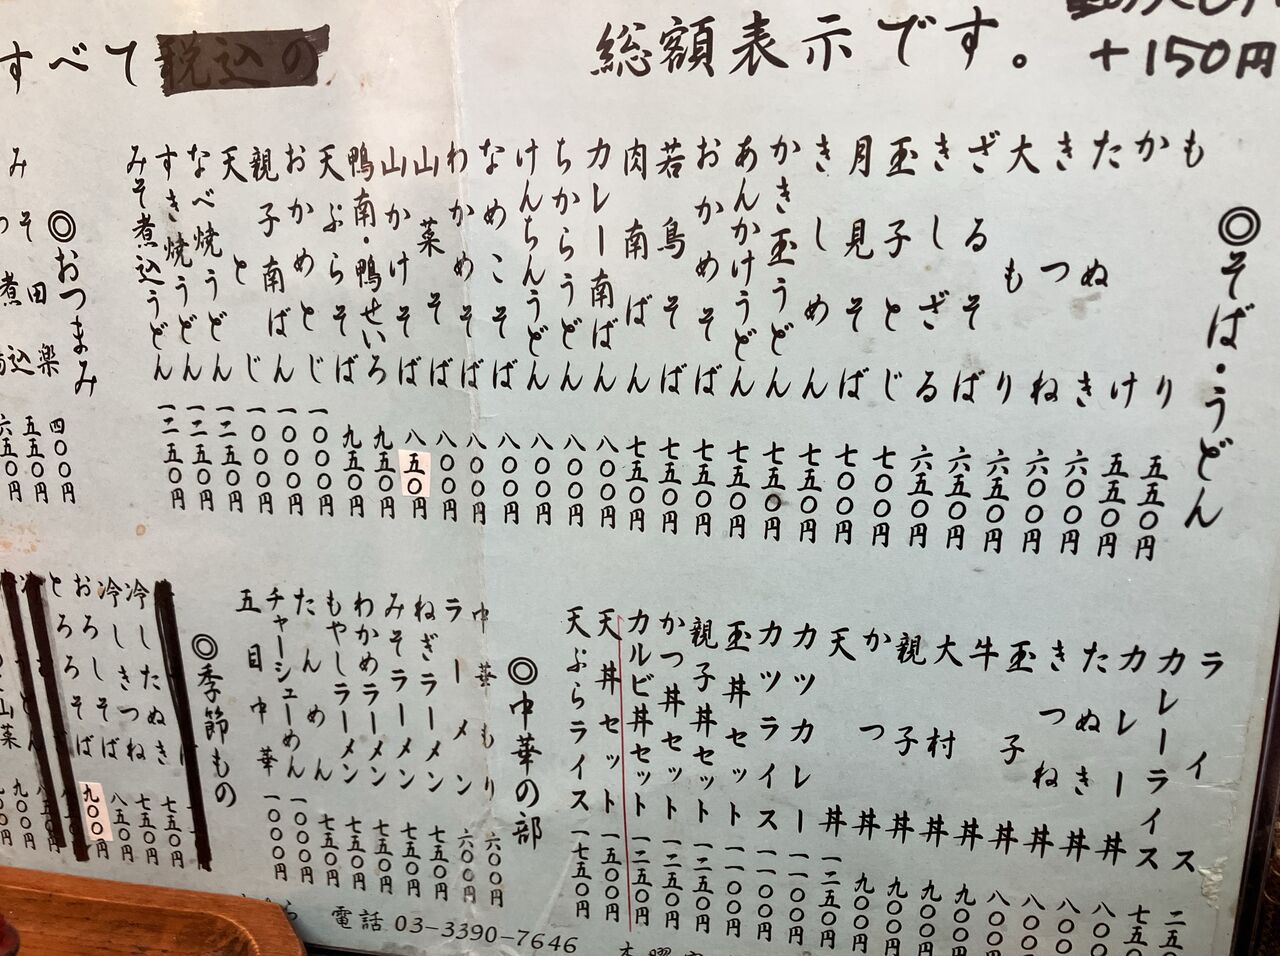 すべて税込の 総額表示です。
+150円
◎そば・うどん
もり 五五〇円
かけ 五五〇円
たぬき 六〇〇円
きつね 六〇〇円
大もり 六五〇円
ざるそば 六五〇円
きしざる 六五〇円
玉子とじ 七〇〇円
月見そば 七〇〇円
きしめん 七五〇円
かき玉うどん 七五〇円
あんかけうどん 七五〇円
おかめそば 七五〇円
若鳥そば 七五〇円
肉南ばん 七五〇円
カレー南ばん 八〇〇円
ちからうどん 八〇〇円
けんちんうどん 八〇〇円
なめこそば 八〇〇円
わかめそば 八〇〇円
山菜そば 八〇〇円
山かけそば 八五〇円
鴨南・鴨せいろ 九五〇円
天ぷらそば 九五〇円
おかめとじ 一〇〇〇円
親子南ばん 一〇〇〇円
天とじ 一〇〇〇円
なべ焼うどん 一二五〇円
すき焼うどん 一二五〇円
みそ煮込うどん 一二五〇円
◎おつまみ
みそ田楽 四〇〇円
煮込 五五〇円
六五〇円
ライス 二五〇
カレーライス 七五〇
カレー丼 八〇〇
たぬき丼 八〇〇
きつね丼 八〇〇円
玉子丼 八〇〇円
牛丼 九〇〇円
大村丼 九〇〇円
親子丼 九〇〇円
かつ丼 九〇〇円
天丼 一二五〇円
カツカレー 一一〇〇円
カツライス 一一〇〇円
玉丼セット 一一〇〇円
親子丼セット 一二五〇円
かつ丼セット 一二五〇円
カルビ丼セット 一二五〇円
天丼セット 一五〇〇円
天ぷらライス 一七五〇円
◎中華の部
中華もり 六〇〇円
ラーメン 六〇〇円
ねぎラーメン 七五〇円
みそラーメン 七五〇円
わかめラーメン 七五〇円
もやしラーメン 七五〇円
たんめん 七五〇円
チャーシューめん 一〇〇〇円
五目中華 一〇〇〇円
◎季節もの
冷したぬき 七五〇円
冷しきつね 七五〇円
おろしそば 八五〇円
とろろそば 九〇〇円
山菜
九〇〇円
電話 03-3390-7646